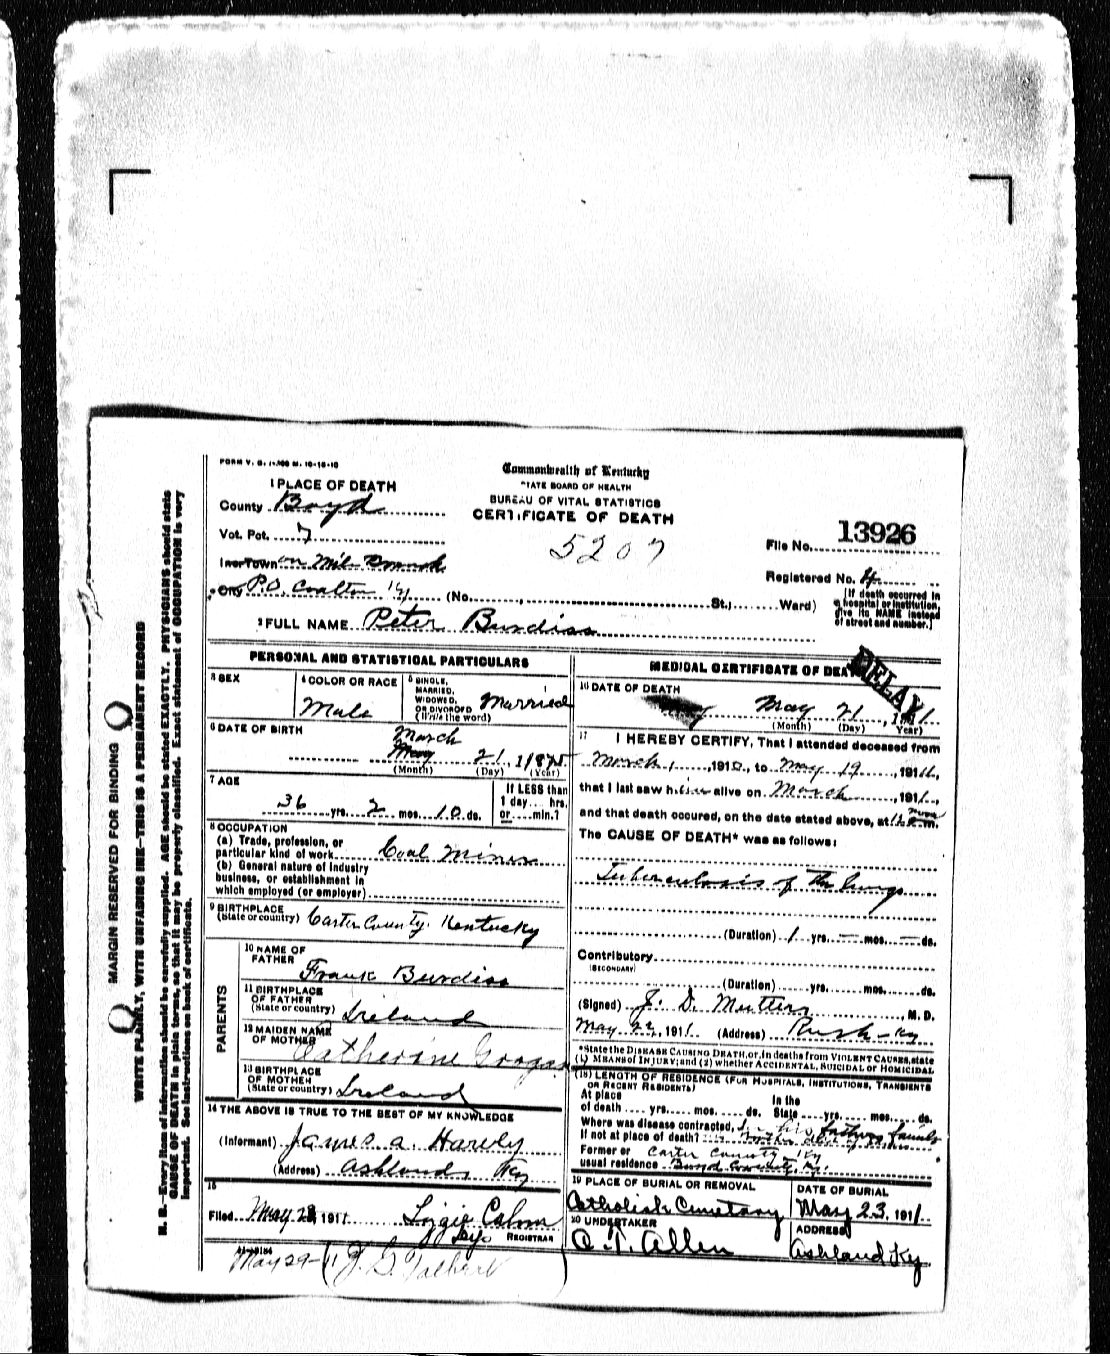 FORM V. S.
Commonwealth of Kentucky
STATE BOARD OF HEALTH
BUREAU OF VITAL STATISTICS
CERTIFICATE OF DEATH
5207
1 PLACE OF DEATH
County Boyd
Vot. Pct. 7
Inc. Town on
City P.O. Coalton Ky (No. , St.; Ward)
File No. 13926
Registered No. 4
[If death occurred in a hospital or institution, give its NAME instead of street and number.]
2 FULL NAME Peter Burdiss
PERSONAL AND STATISTICAL PARTICULARS
3 SEX
4 COLOR OR RACE
Male
5 SINGLE, MARRIED, WIDOWED, OR DIVORCED (Write the word) Married
6 DATE OF BIRTH
March
May 21, 187
(Month) (Day) (Year)
7 AGE
36 yrs. 2 mos. 10 ds.
If LESS than 1 day ... hrs. or ... min.?
8 OCCUPATION
(a) Trade, profession, or particular kind of work Coal Miner
(b) General nature of industry business, or establishment in which employed (or employer)
9 BIRTHPLACE
(State or country) Carter County. Kentucky
PARENTS
10 NAME OF FATHER
Frank Burdiss
11 BIRTHPLACE OF FATHER
(State or country) Ireland
12 MAIDEN NAME OF MOTHER Catherine Grogan
13 BIRTHPLACE OF MOTHER
(State or country) Ireland
14 THE ABOVE IS TRUE TO THE BEST OF MY KNOWLEDGE
(Informant) James A. Harvey
(Address) Ashland, Ky
15
Filed May 1911 Lizzie
REGISTRAR
May 29-11
MEDICAL CERTIFICATE OF DEATH
DELAY
16 DATE OF DEATH
May 21, 1911
(Month) (Day) (Year)
17 I HEREBY CERTIFY, That I attended deceased from
March, 1910, to May 19, 1911,
that I last saw him alive on March, 1911,
and that death occured, on the date stated above, at 12 m.
The CAUSE OF DEATH* was as follows:
Tuberculosis of the lungs
(Duration) 1 yrs. — mos. — ds.
Contributory
(SECONDARY)
(Duration) yrs. mos. ds.
(Signed) J. D. , M. D.
May 22, 1911 (Address) Rush Ky
*State the DISEASE CAUSING DEATH, or, in deaths from VIOLENT CAUSES, state (1) MEANS of INJURY; and (2) whether ACCIDENTAL, SUICIDAL or HOMICIDAL
(18) LENGTH OF RESIDENCE (FOR HOSPITALS, INSTITUTIONS, TRANSIENTS OR RECENT RESIDENTS)
At place of death yrs. mos. ds. In the State yrs. mos. ds.
Where was disease contracted, in his fathers family
If not at place of death?
Former or usual residence Carter County Ky
Boyd County, Ky.
19 PLACE OF BURIAL OR REMOVAL
Catholick Cemetary
DATE OF BURIAL
May 23, 1911
20 UNDERTAKER
C. T. Allen
ADDRESS
Ashland Ky
MARGIN RESERVED FOR BINDING
WRITE PLAINLY, WITH UNFADING INK—THIS IS A PERMANENT RECORD
N. B.—Every item of information should be carefully supplied. AGE should be stated EXACTLY. PHYSICIANS should state
CAUSE OF DEATH in plain terms, so that it may be properly classified. Exact statement of OCCUPATION is very
important. See instructions on back of certificate.